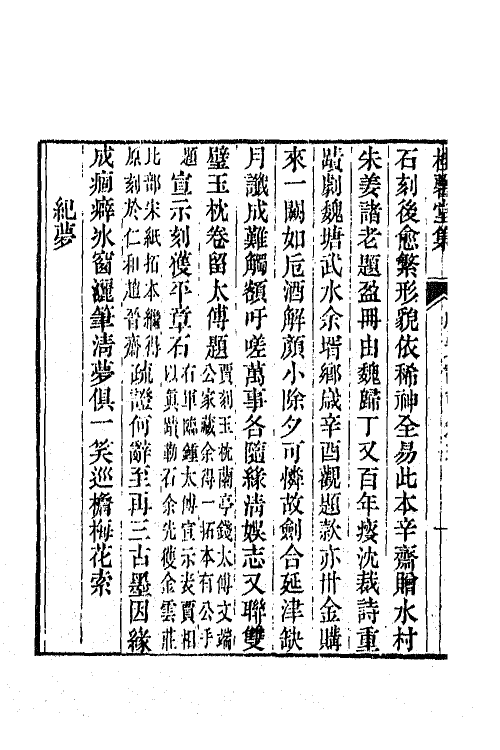 石刻後愈繁形貌依稀神全易此本辛齋贈水村
朱姜諸老題盈冊由魏歸丁又百年瘦沈裁詩重
蹟劇魏塘武水余壻鄉歲辛酉觀題款亦卅金購
來一闕如卮酒解顏小除夕可憐故劍合延津缺
月讖成難觸額吁嗟萬事各隨緣淸娛志又聯雙
璧玉枕卷留太傅題
賈刻玉枕蘭亭錢太傅文端
公家藏余得一拓本有公手
題
宣示刻獲平章石
右軍臨鍾太傅宣示表賈相
以真蹟勒石余先獲金雲莊
比部宋紙拓本繼得
原刻於仁和趙晉齋
疏證何辭至再三古墨因緣
成痼癖氷窗灑筆淸夢俱一笑巡檐梅花索
紀夢